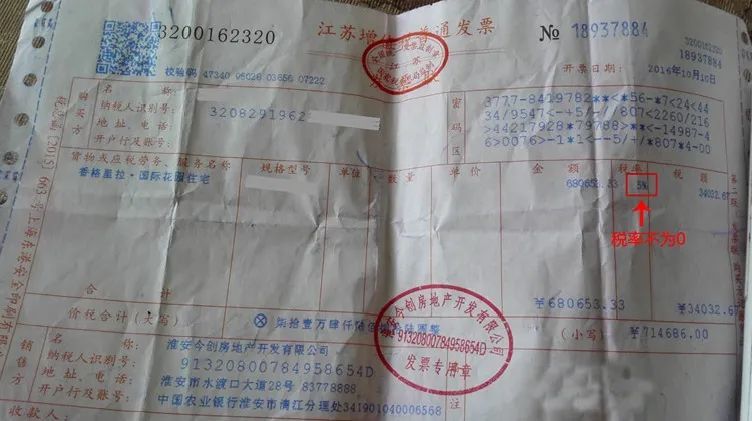 3200162320
江苏增值税普通发票
№ 18937884
3200162320
18937884
校验码 47340 95028 03656 07222
开票日期: 2016年10月10日
购买方
纳税人识别号: 3208291962
地址、电话:
开户行及账号:
密码区
3777-8419782**<*56-*7<24<44
34/9547<-+5/-//807<2260/216
>44217928*79788>**<-14987-4
6>0076>-1*1<--5/+/*807*4-00
货物或应税劳务、服务名称
规格型号
单位
数量
单价
金额
税率
税额
香格里拉·国际花园住宅
680653.33
5%
34032.67
税率不为0
合计
¥680653.33
¥34032.67
价税合计(大写)
ⓧ柒拾壹万肆仟陆佰捌拾陆圆整
(小写)
¥714686.00
销售方
淮安今创房地产开发有限公司
纳税人识别号: 91320800784958654D
地址、电话: 淮安市水渡口大道28号 83778888
开户行及账号: 中国农业银行淮安市清江分理处341901040006568
备注
淮安今创房地产开发有限公司
91320800784958654D
发票专用章
收款人: